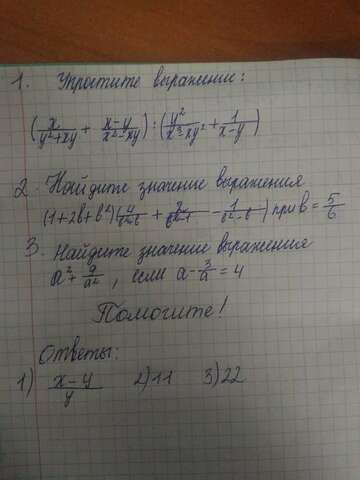 1. Упростите выражении:
(x/(y²+xy) + (x-y)/(x²-xy)) : (y²/(x³-xy²) + 1/(x-y))
2. Найдите значение выражения
(1+2b+b²) при b = 5/6
3. Найдите значение выражения
a² + 9/a², если a - 3/a = 4
Помогите!
Ответы:
1) (x-y)/y 2) 11 3) 22